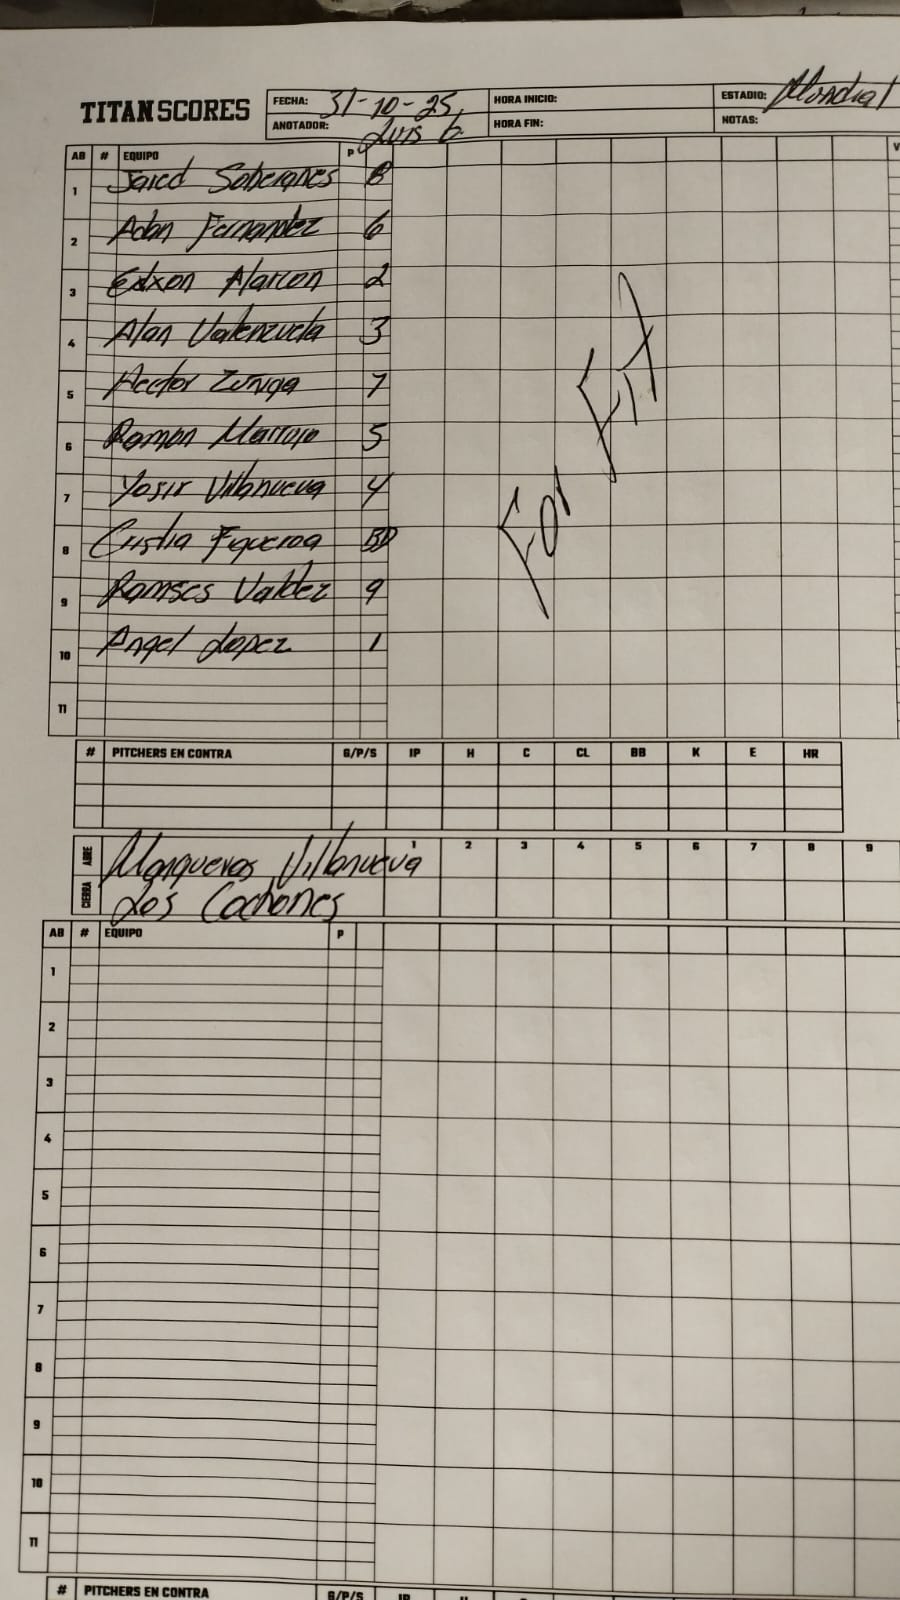 TITAN SCORES
FECHA: 31-10-25 HORA INICIO: ESTADIO: Mondial
ANOTADOR: Luis G. HORA FIN: NOTAS:
AB # EQUIPO P V
1 Jared Soberanes 8
2 Adan Fernandez 6
3 Edxon Alarcon 2
4 Alan Valenzuela 3
5 Hector Zuniga 7
6 Ramon Marrojo 5
7 Yosir Villanueva 4
8 Cristia Figueroa BD
9 Ramses Valdez 9
10 Angel Lopez 1
11
For FiT
# PITCHERS EN CONTRA G/P/S IP H C CL BB K E HR
1 2 3 4 5 6 7 8 9
ABRE Manqueros Villanueva
CIERRA Los Cachones
AB # EQUIPO P
1
2
3
4
5
6
7
8
9
10
11
# PITCHERS EN CONTRA G/P/S IP H